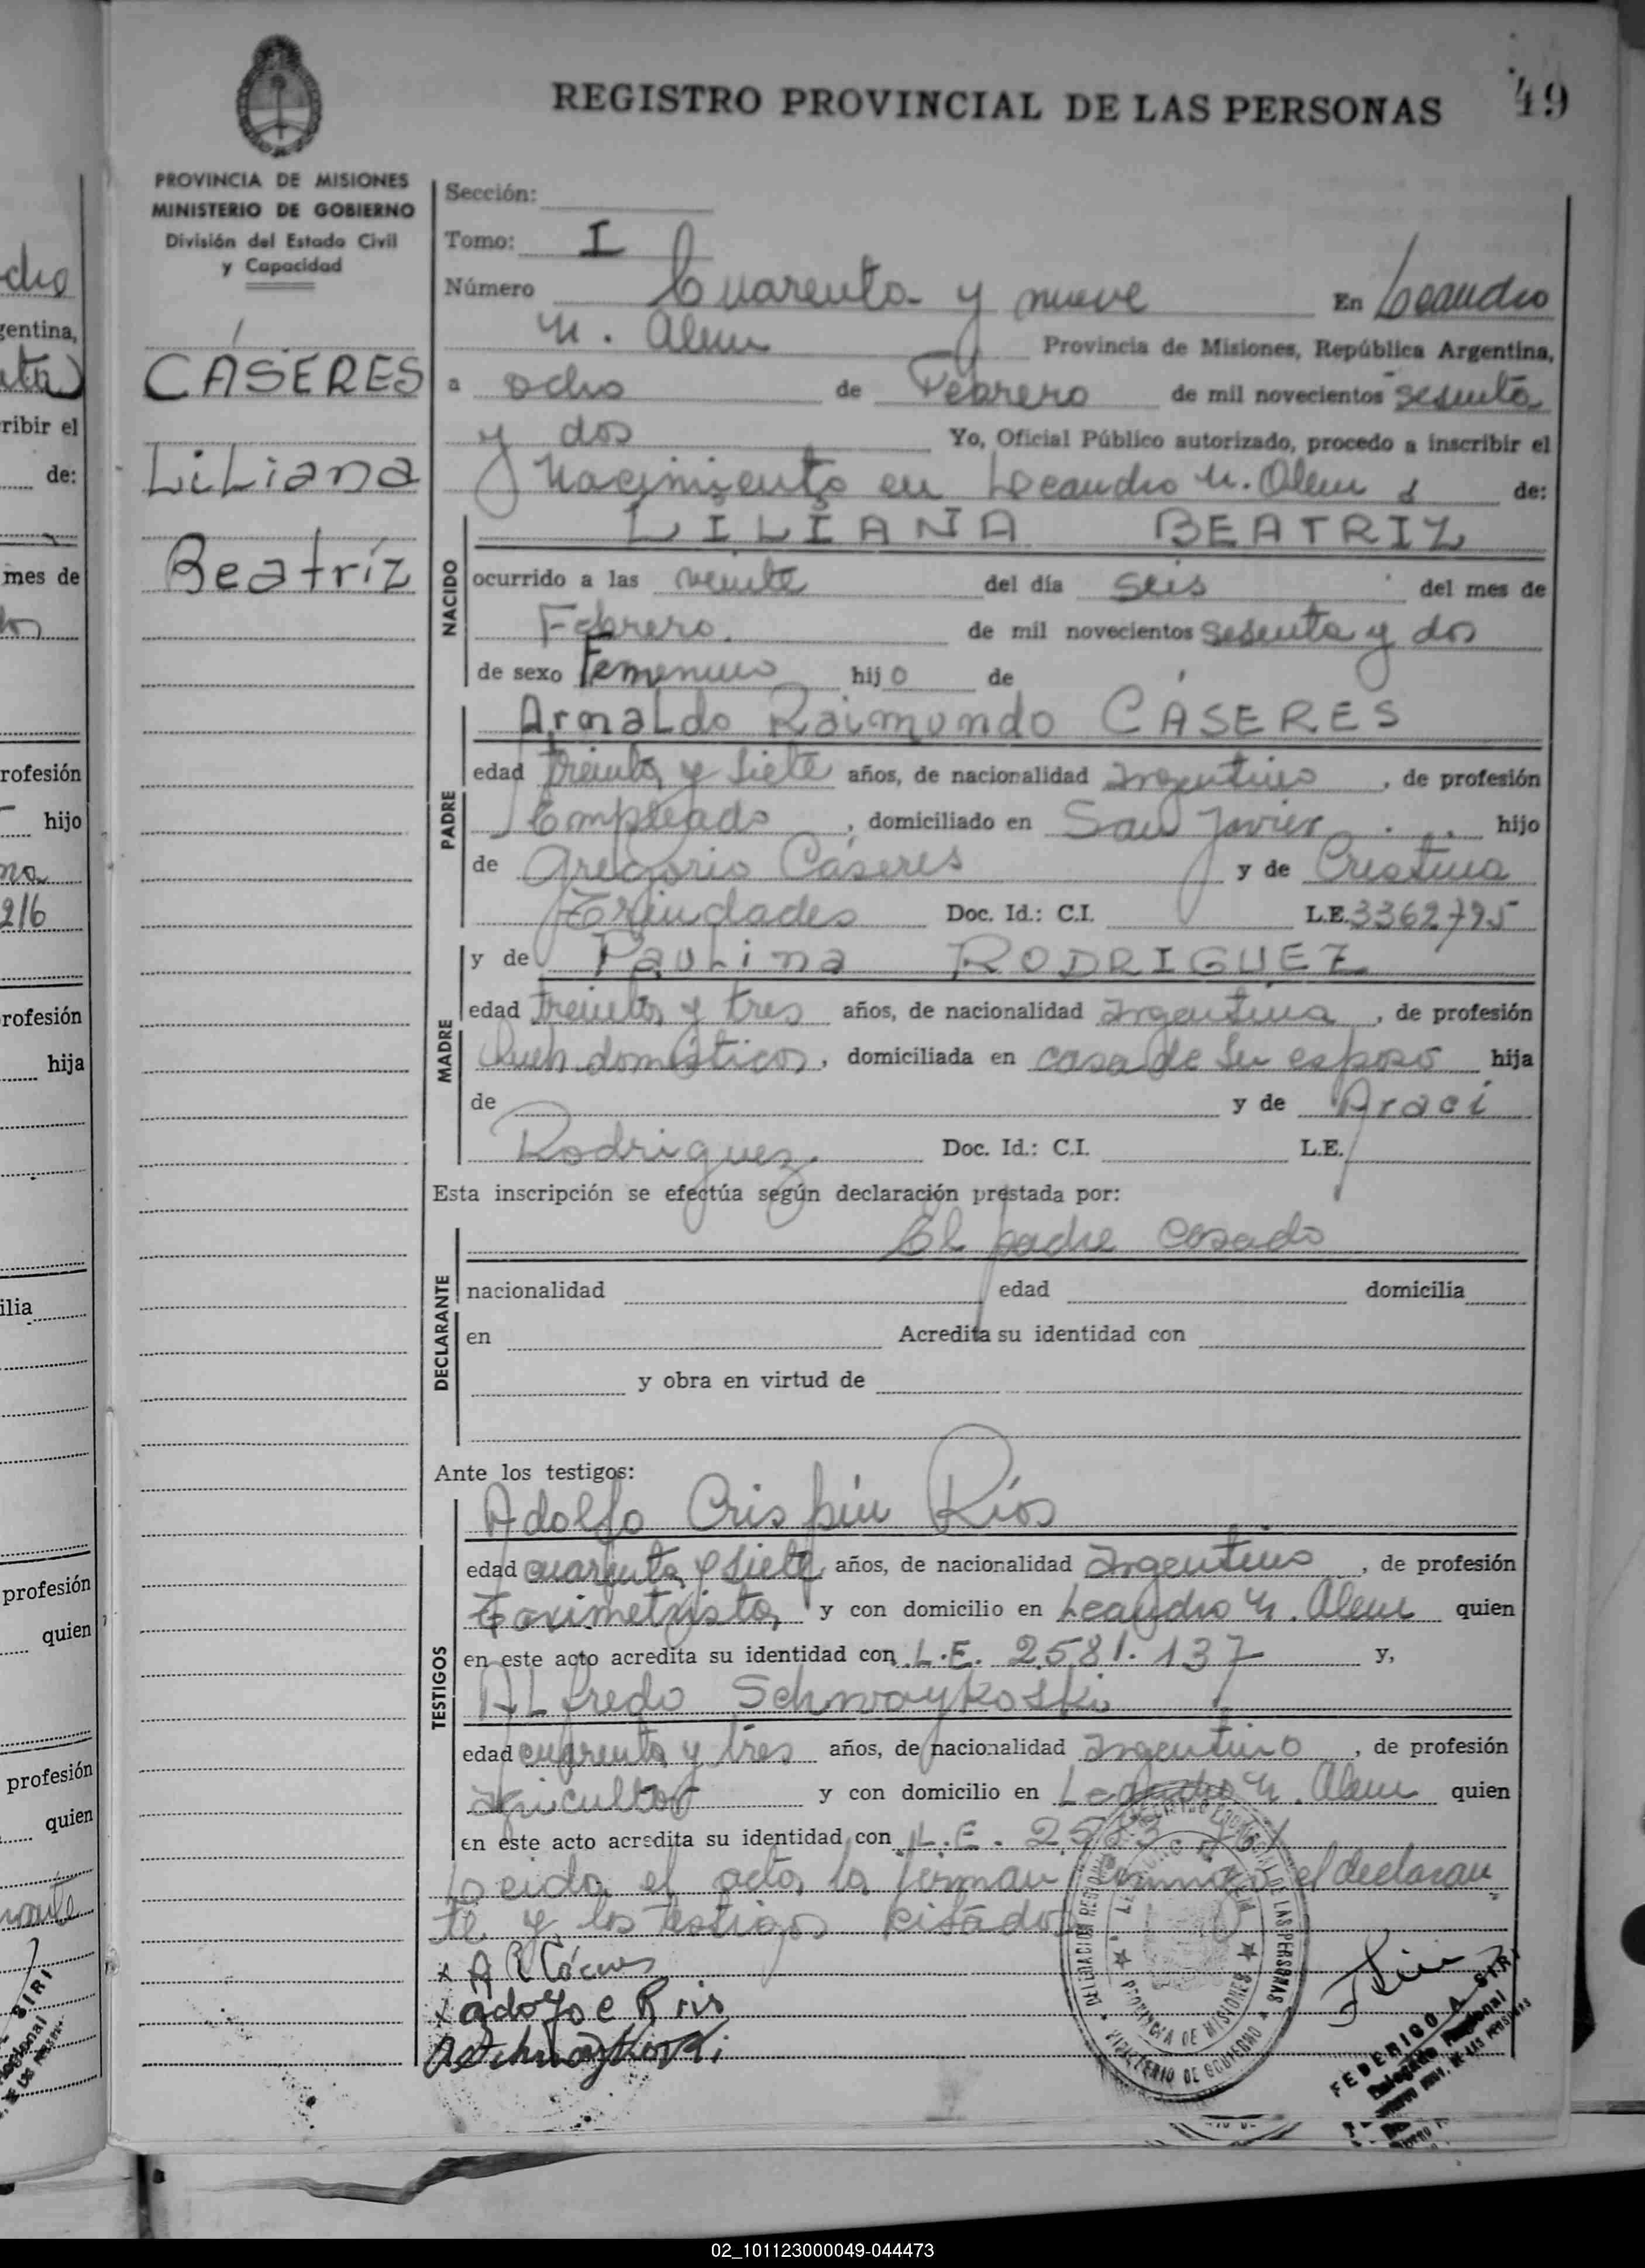 REGISTRO PROVINCIAL DE LAS PERSONAS
49
PROVINCIA DE MISIONES
MINISTERIO DE GOBIERNO
División del Estado Civil
y Capacidad
CÁSERES
LiLiana
Beatríz
Sección:
Tomo: I
Número Cuarenta y nueve En Leandro
N. Alem Provincia de Misiones, República Argentina,
a ocho de Febrero de mil novecientos sesenta
y dos Yo, Oficial Público autorizado, procedo a inscribir el
Nacimiento en Leandro N. Alem de:
NACIDO
LILIANA BEATRIZ
ocurrido a las veinte del día seis del mes de
Febrero. de mil novecientos sesenta y dos
de sexo Femenino hijo de
PADRE
Arnaldo Raimundo CÁSERES
edad treinta y siete años, de nacionalidad argentino, de profesión
Empleado, domiciliado en San Javier hijo
de Gregorio Cáseres y de Cristina
Trindades Doc. Id.: C.I. L.E. 3362795
MADRE
y de PauLina RODRIGUEZ
edad treinta y tres años, de nacionalidad argentina, de profesión
Queh. domésticos, domiciliada en casa de su esposo hija
de y de Araci
Rodriguez. Doc. Id.: C.I. L.E.
Esta inscripción se efectúa según declaración prestada por:
DECLARANTE
El padre casado
nacionalidad edad domicilia
en Acredita su identidad con
y obra en virtud de
Ante los testigos:
TESTIGOS
Adolfo Crispin Ríos
edad cuarenta y siete, años, de nacionalidad argentino, de profesión
Taximetrista, y con domicilio en Leandro N. Alem quien
en este acto acredita su identidad con L.E. 2.581.137 y,
ALfredo Schwaykoski
edad cuarenta y tres años, de nacionalidad argentino, de profesión
agricultor y con domicilio en Leandro N. Alem quien
en este acto acredita su identidad con L.E.
Leida el acta la firman conmigo el declaran
te y los testigos citados
x A R Cáceres
x adolfo c Rios
ASchwaykoski
DELEGACION REGIONAL
DE LAS PERSONAS
PROVINCIA DE MISIONES
MINISTERIO DE GOBIERNO
FEDERICO A. SIRI
Delegado Regional
ocho
gentina,
ribir el
de:
mes de
rofesión
hijo
216
rofesión
hija
ilia
profesión
quien
profesión
quien
SIRI
02_101123000049-044473